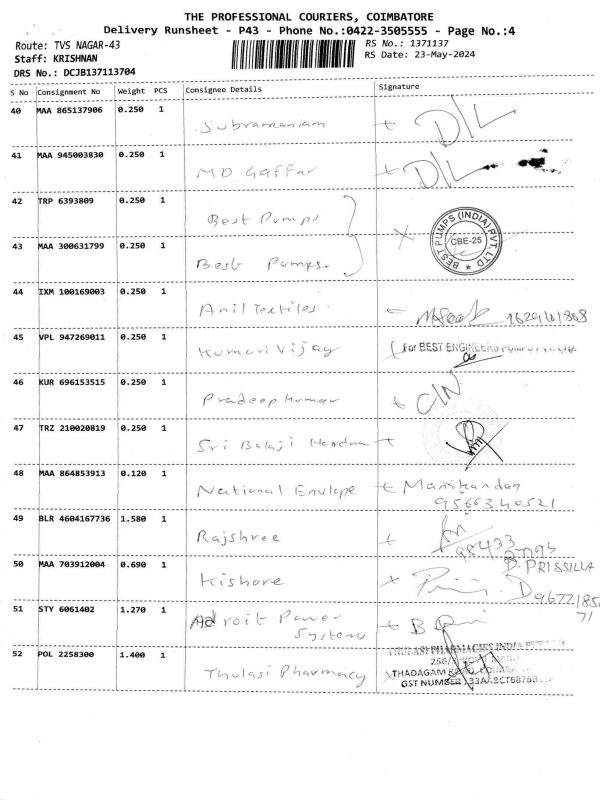 THE PROFESSIONAL COURIERS, COIMBATORE
Delivery Runsheet - P43 - Phone No.:0422-3505555 - Page No.:4
Route: TVS NAGAR-43 RS No.: 1371137
Staff: KRISHNAN RS Date: 23-May-2024
DRS No.: DCJB137113704
S No Consignment No Weight PCS Consignee Details Signature
40 MAA 865137906 0.250 1 Subramaniam D/L
41 MAA 945003830 0.250 1 MD Gaffar D/L
42 TRP 6393809 0.250 1 Best Pumps
BEST PUMPS (INDIA) PVT. LTD CBE-25
43 MAA 300631799 0.250 1 Best Pumps.
44 IXM 100169003 0.250 1 Anil Textiles
45 VPL 947269011 0.250 1 Kumari Vijay For BEST ENGINEERS
46 KUR 696153515 0.250 1 Pradeep kumar
47 TRZ 210020819 0.250 1 Sri Balaji
48 MAA 864853913 0.120 1 National Envlope Manikandan
9566340521
49 BLR 4604167736 1.580 1 Rajshree 98433
50 MAA 703912004 0.690 1 Kishore D. PRISSILLA
51 STY 6061402 1.270 1 Adroit Power
System
THULASI PHARMACIES INDIA
52 POL 2258300 1.400 1 Thulasi Pharmacy THADAGAM
GST NUMBER